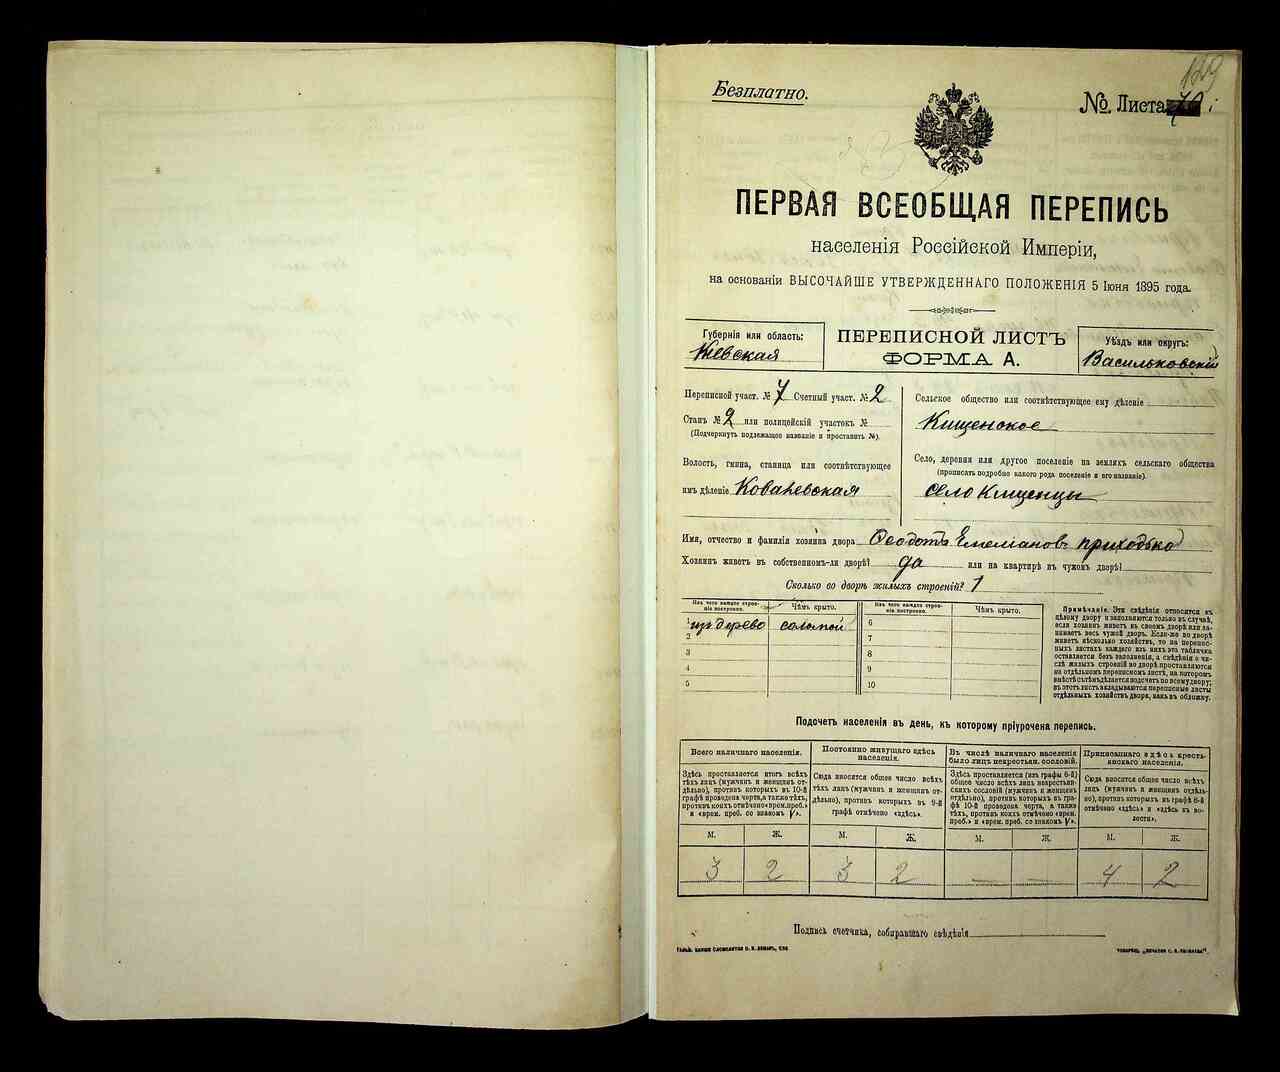 129
Безплатно.
№ Листа 70
ПЕРВАЯ ВСЕОБЩАЯ ПЕРЕПИСЬ
населенія Россійской Имперіи,
на основаніи ВЫСОЧАЙШЕ УТВЕРЖДЕННАГО ПОЛОЖЕНІЯ 5 Іюня 1895 года.
Губернія или область:
Кіевская
ПЕРЕПИСНОЙ ЛИСТЪ
ФОРМА А.
Уѣздъ или округъ:
Васильковскій
Переписной участ. № 7 Счетный участ. № 2
Станъ № 2 или полицейскій участокъ №
(Подчеркнуть подлежащее названіе и проставить №).
Волость, гмина, станица или соотвѣтствующее
имъ дѣленіе Кованевская
Сельское общество или соотвѣтствующее ему дѣленіе
Кищенское
Село, деревня или другое поселеніе на земляхъ сельскаго общества
(прописать подробно какого рода поселеніе и его названіе).
село Кищенцы
Имя, отчество и фамилія хозяина двора Ѳеодотъ Емельяновъ Приходько
Хозяинъ живетъ въ собственномъ-ли дворѣ? да или на квартирѣ въ чужомъ дворѣ?
Сколько во дворѣ жилыхъ строеній? 1
Изъ чего каждое строеніе построено.
Чѣмъ крыто.
Изъ чего каждое строеніе построено.
Чѣмъ крыто.
1 изъ дерево соломой 6
2 7
3 8
4 9
5 10
Примѣчаніе. Эти свѣдѣнія относятся къ
цѣлому двору и заполняются только въ случаѣ,
если хозяинъ живетъ въ своемъ дворѣ или за-
нимаетъ весь чужой дворъ. Если-же во дворѣ
живетъ нѣсколько хозяйствъ, то на перепис-
ныхъ листахъ каждаго изъ нихъ эта табличка
оставляется безъ заполненія, а свѣдѣнія о чи-
слѣ жилыхъ строеній во дворѣ проставляются
на отдѣльномъ переписномъ листѣ, на которомъ
вмѣстѣ съ тѣмъ дѣлается подсчетъ по всему двору;
въ этотъ листъ вкладываются переписные листы
отдѣльныхъ хозяйствъ двора, какъ въ обложку.
Подсчетъ населенія въ день, къ которому пріурочена перепись.
Всего наличнаго населенія.
Здѣсь проставляется итогъ всѣхъ
тѣхъ лицъ (мужчинъ и женщинъ от-
дѣльно), противъ которыхъ въ 10-й
графѣ проведена черта, а также тѣхъ,
противъ коихъ отмѣчено «врем. преб.»
и «врем. преб. со знакомъ V».
М. Ж.
3 2
Постоянно живущаго здѣсь
населенія.
Сюда вносится общее число всѣхъ
тѣхъ лицъ (мужчинъ и женщинъ от-
дѣльно), противъ которыхъ въ 9-й
графѣ отмѣчено «здѣсь».
М. Ж.
3 2
Въ числѣ наличнаго населенія
было лицъ некрестьян. сословій.
Здѣсь проставляется (изъ графы 6-й)
общее число всѣхъ лицъ некрестьян-
скихъ сословій (мужчинъ и женщинъ
отдѣльно), противъ которыхъ въ гра-
фѣ 10-й проведена черта, а также
тѣхъ, противъ коихъ отмѣчено «врем.
преб.» и «врем. преб. со знакомъ V».
М. Ж.
— —
Приписаннаго здѣсь кресть-
янскаго населенія.
Сюда вносится общее число всѣхъ
лицъ (мужчинъ и женщинъ отдѣль-
но), противъ которыхъ въ графѣ 8-й
отмѣчено «здѣсь» и «здѣсь въ во-
лости».
М. Ж.
4 2
Подпись счетчика, собиравшаго свѣдѣнія